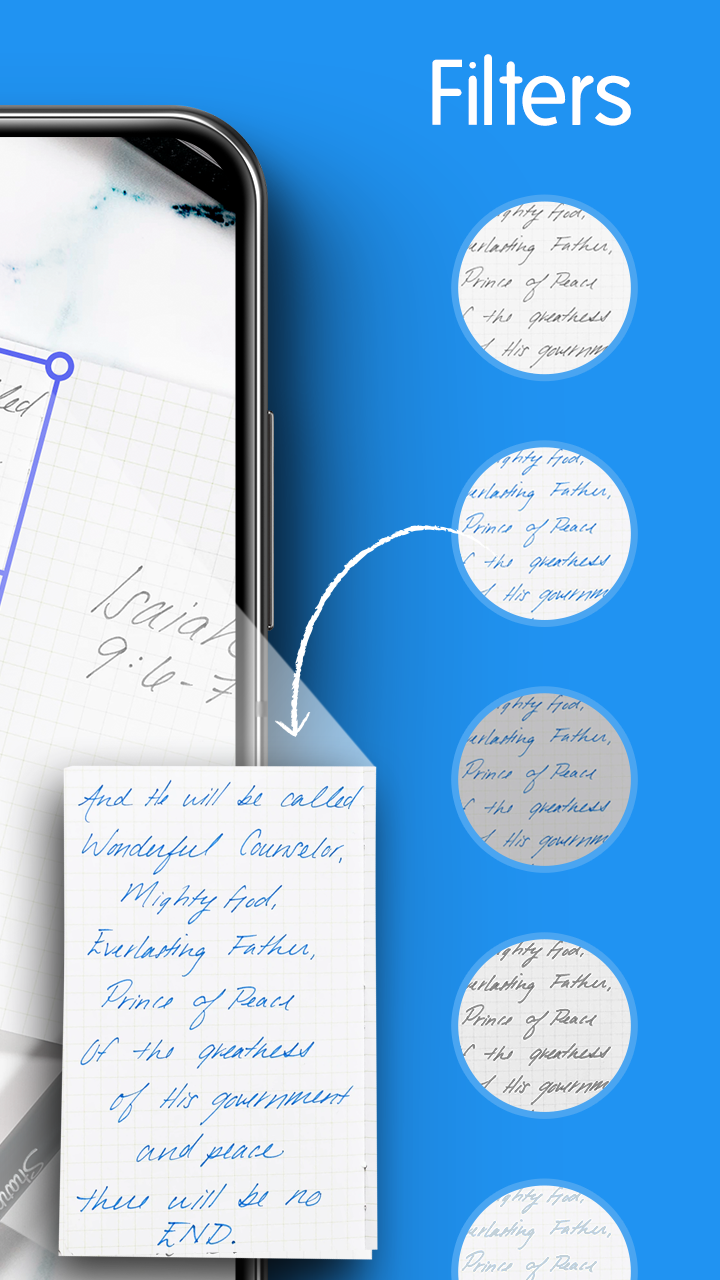 Filters
ghty God,
erlasting Father,
Prince of Peace
f the greatness
His governm
ghty God,
erlasting Father,
Prince of Peace
f the greatness
His governm
led
Isaiah
9:6-7
ghty God,
erlasting Father,
Prince of Peace
f the greatness
His governm
And He will be called
Wonderful Counselor,
Mighty God,
Everlasting Father,
Prince of Peace
Of the greatness
of His government
and peace
there will be no
END.
ghty God,
erlasting Father,
Prince of Peace
f the greatness
His governm
ghty God,
erlasting Father,
Prince of Peace